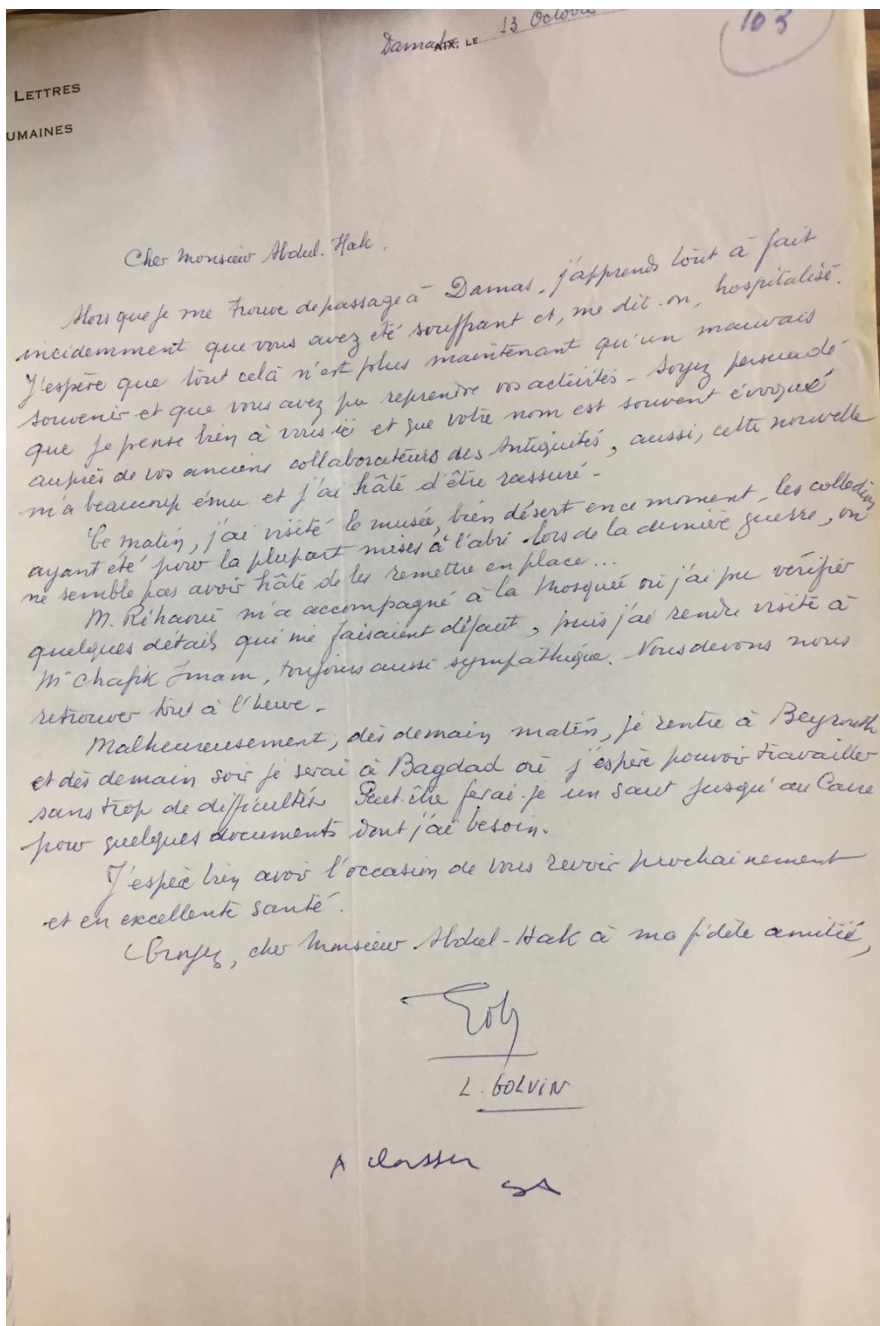 Damas AIX, LE 13 Octobre
103
LETTRES
UMAINES
Cher Monsieur Abdul-Hak.
Alors que je me trouve de passage à Damas, j'apprends tout à fait
incidemment que vous avez été souffrant et, me dit-on, hospitalisé.
J'espère que tout celà n'est plus maintenant qu'un mauvais
souvenir et que vous avez pu reprendre vos activités - Soyez persuadé
que je pense bien à vous ici et que votre nom est souvent évoqué
auprès de vos anciens collaborateurs des Antiquités, aussi, cette nouvelle
m'a beaucoup ému et j'ai hâte d'être rassuré -
Ce matin, j'ai visité le musée, bien désert en ce moment, les collections
ayant été pour la plupart mises à l'abri lors de la dernière guerre, on
ne semble pas avoir hâte de les remettre en place...
M. Rihaoui m'a accompagné à la Mosquée où j'ai pu vérifier
quelques détails qui me faisaient défaut, puis j'ai rendu visite à
Mr Chafik Imam, toujours aussi sympathique. Nous devons nous
retrouver tout à l'heure -
Malheureusement, dès demain matin, je rentre à Beyrouth
et dès demain soir je serai à Bagdad où j'espère pouvoir travailler
sans trop de difficultés Peut-être ferai-je un saut jusqu'au Caire
pour quelques documents dont j'ai besoin.
J'espère bien avoir l'occasion de vous revoir prochainement
et en excellente santé.
Croyez, cher Monsieur Abdul-Hak à ma fidèle amitié,
Golv
L. GOLVIN
A classer